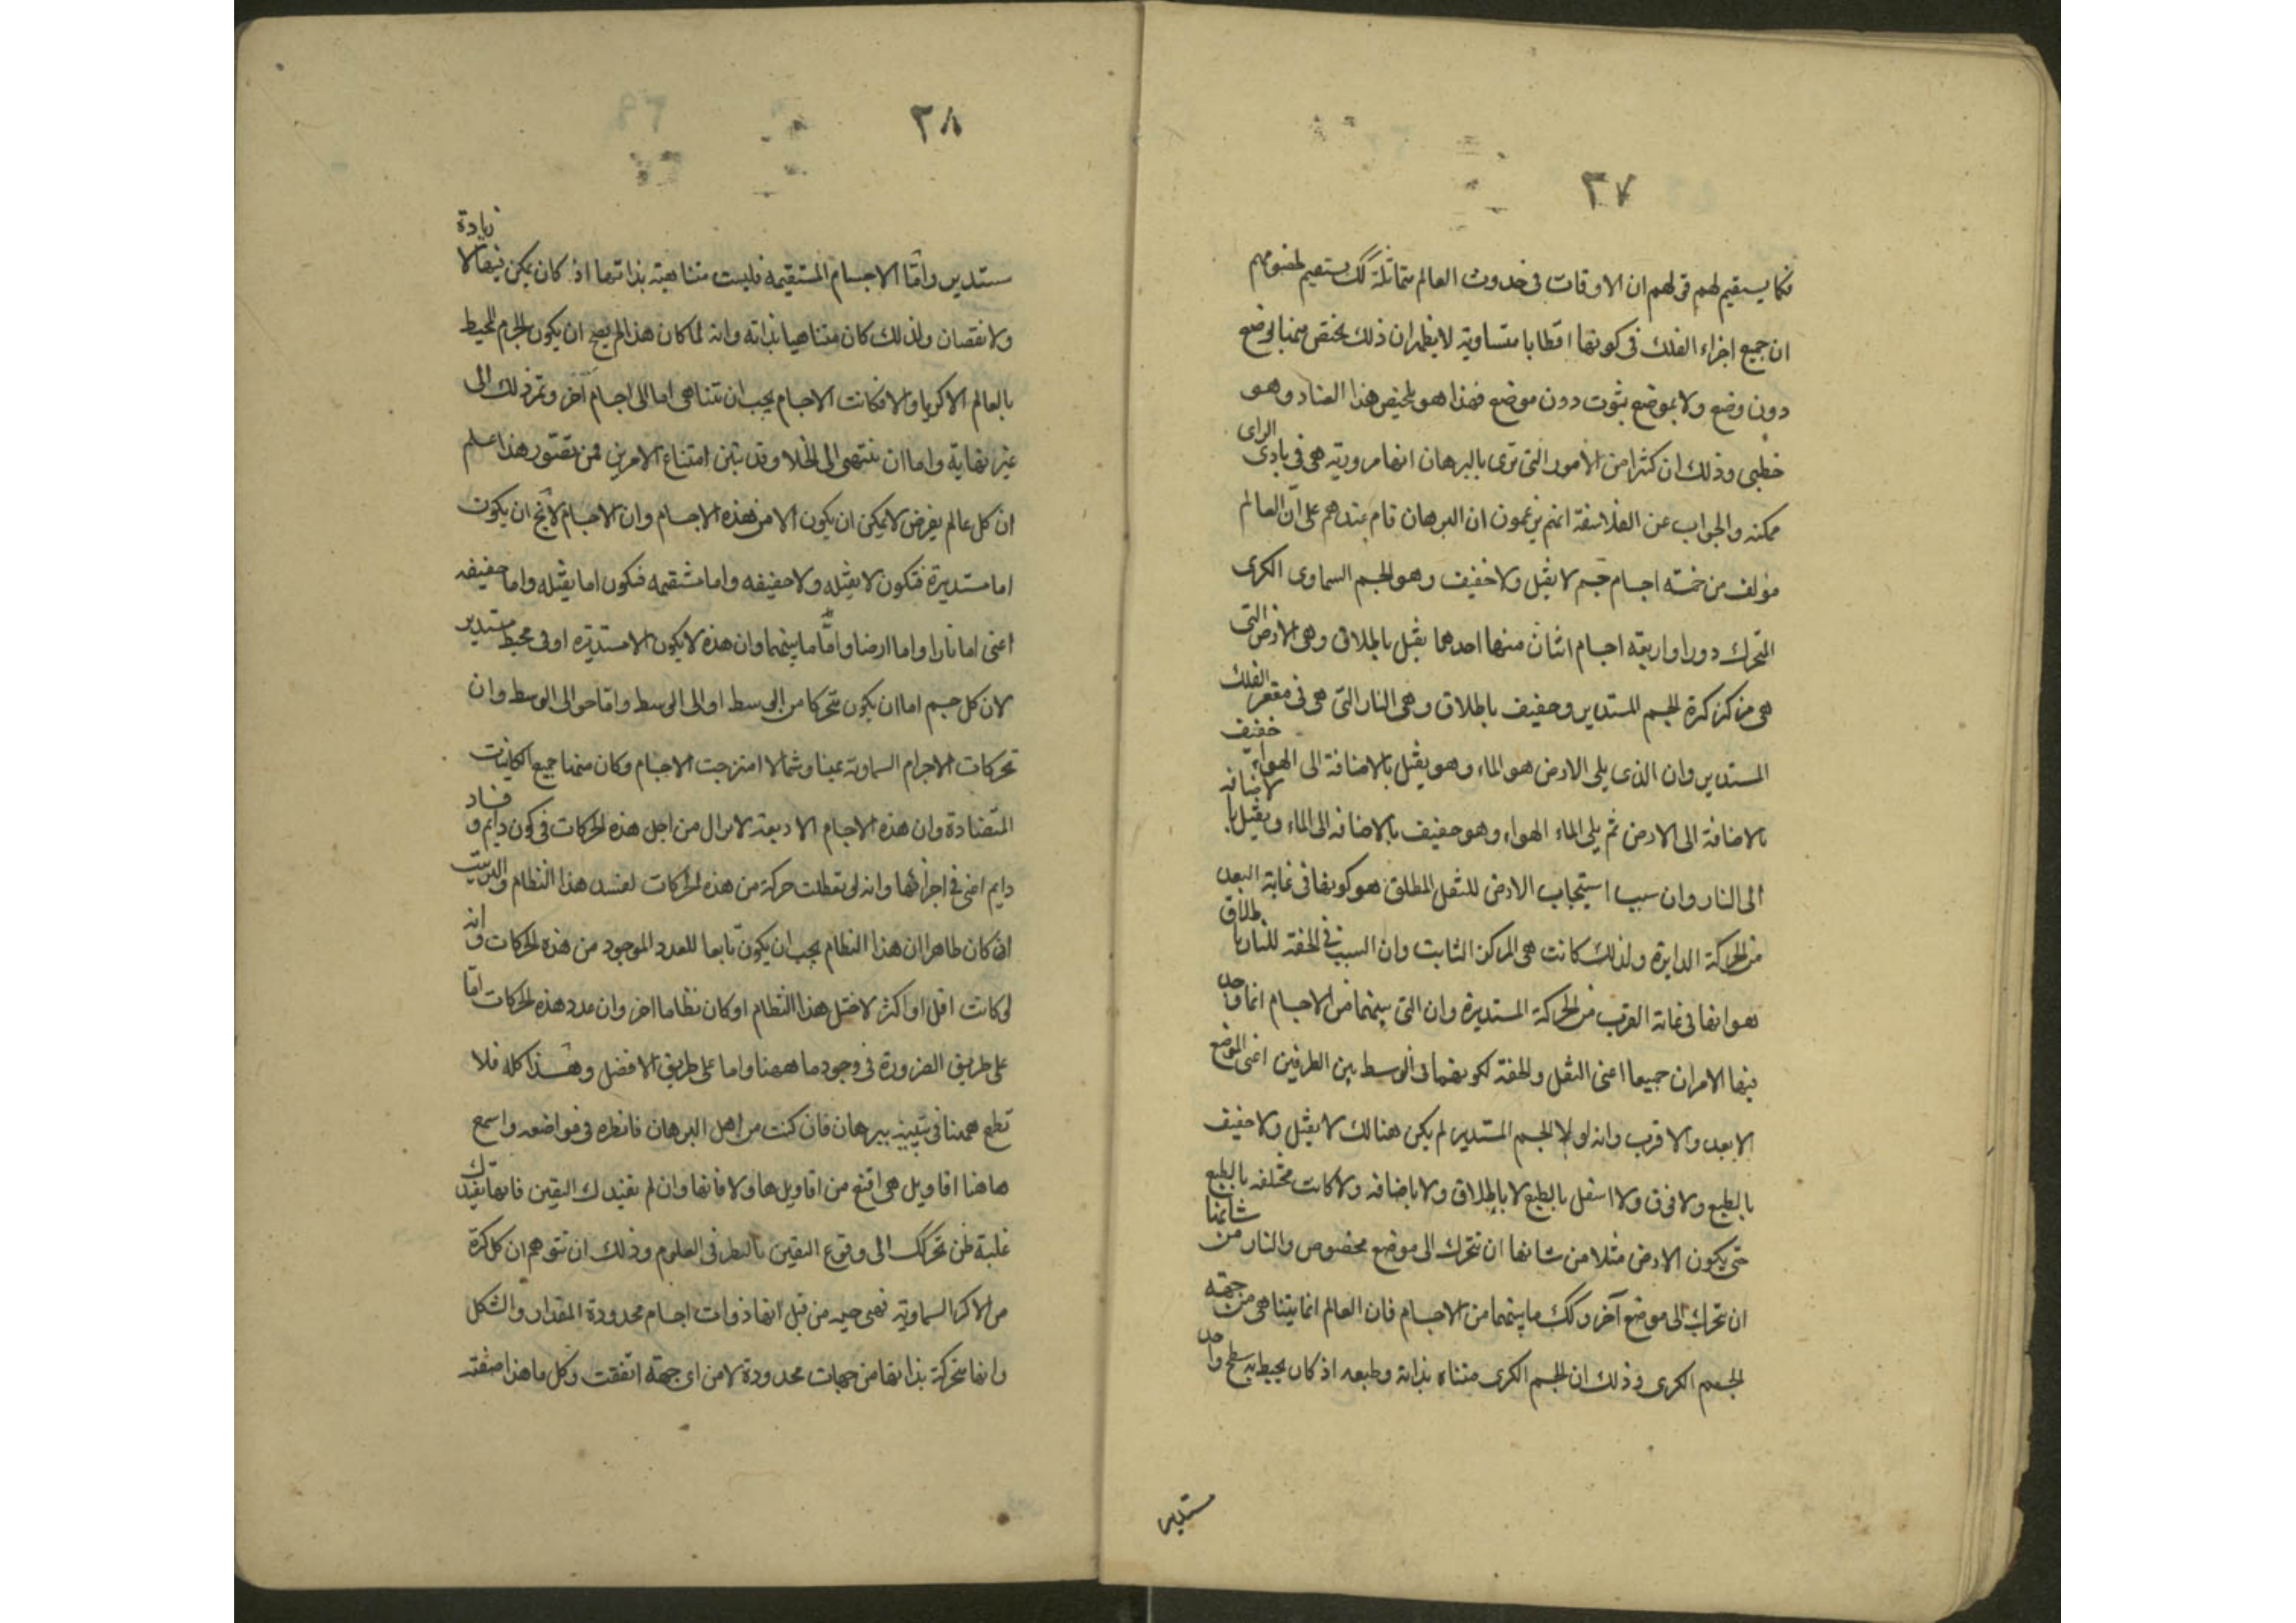 ٣٧
فكما يستقيم لهم قولهم ان الاوقات فى حدوث العالم متماثلة كك يستقيم لخصومهم
ان جميع اجزاء الفلك فى كونها اقطابا متساوية لا يظهر ان ذلك يختص منها لوضع
دون وضع ولا بموضع بثوت دون موضع فهذا هو تلخيص هذا العناد وهو
خطبى وذلك ان كثيرا من الأمور التى ترى بالبرهان انها ضرورية هى فى بادى الراى
ممكنه والجواب عن الفلاسفة انهم يزعمون ان البرهان قام عندهم على ان العالم
مؤلف من خمسة اجسام جسم لا ثقيل ولا خفيف وهو الجسم السماوى الكرى
المتحرك دورا واربعة اجسام اثنان منها احدهما ثقيل باطلاق وهى الارض التى
هى مركز كرة الجسم المستدير وخفيف باطلاق وهى النار التى هى فى مقعر الفلك
المستدير وان الذى يلى الارض هو الماء وهو ثقيل بالاضافة الى الهواء خفيف
بالاضافة الى الارض ثم يلى الماء الهواء وهو خفيف بالاضافه الى الماء وثقيل بالاضافه
الى النار وان سبب استيجاب الارض للثقل المطلق هو كونها فى غاية البعد
من الحركة الدايرة ولذلك كانت هى المركز الثابت وان السبب فى الخفة للنار باطلاق
هو انها فى غاية القرب من الحركة المستديرة وان التى بينهما من الاجسام انما وجد
فيها الامران جميعا اعنى الثقل والخفة لكونهما فى الوسط بين الطرفين اعنى الموضع
الابعد والاقرب وانه لولا الجسم المستدير لم يكن هنالك لا ثقيل ولا خفيف
بالطبع ولا فوق ولا اسفل بالطبع لا باطلاق ولا باضافه ولا كانت مختلفه بالطبع
حتى يكون الارض مثلا من شانها ان تتحرك الى موضع مخصوص والنار من شانها
ان تتحرك الى موضع آخر وكك ما بينهما من الاجسام فان العالم انما يتناهى من جهة
الجسم الكرى وذلك ان الجسم الكرى متناه بذاته وطبعه اذ كان يحيط به سطح واحد
مستدير
٣٨
مستدير واما الاجسام المستقيمه فليست متناهية بذاتها اذ كان يمكن فيها لا زيادة
ولا نقصان ولذلك كان متناهيا بذاته وانه لما كان هذا لم يصح ان يكون الجرم المحيط
بالعالم الا كريا والا فكانت الاجسام يجب ان تتناهى اما الى اجسام آخر وتمر ذلك الى
غير نهاية واما ان تنتهى الى الخلا وقد تبين امتناع الامرين فمن تصور هذا علم
ان كل عالم يفرض لا يمكن ان يكون الا من هذه الاجسام وان الاجسام لا تخ ان يكون
اما مستديرة فتكون لا ثقيله ولا خفيفه واما مستقيمه فتكون اما ثقيله واما خفيفه
اعنى اما نارا واما ارضا واما ما بينهما وان هذه لا يكون الا مستديرة او فى محيط مستدير
لان كل جسم اما ان يكون متحركا من الوسط او الى الوسط واما حوالى الوسط وان
تحركات الاجرام السماوية يمينا وشمالا امتزجت الاجسام وكان منها جميع الكاينات
المتضادة وان هذه الاجسام الاربعة لا تزال من اجل هذه الحركات فى كون دايم وفساد
دايم اعنى فى اجزائها وانه لو تعطلت حركة من هذه الحركات لفسد هذا النظام والترتيب
اذ كان ظاهرا ان هذا النظام يجب ان يكون تابعا للعدد الموجود من هذه الحركات وانه
لو كانت اقل او اكثر لاختل هذا النظام او كان نظاما اخر وان عدد هذه الحركات اما
على طريق الضرورة فى وجود ما ههنا واما على طريق الافضل وهذا كله فلا
تطمع ههنا فى تبيينه ببرهان فان كنت من اهل البرهان فانظره فى مواضعه واسمع
هاهنا اقاويل هى اقنع من اقاويل هاولا فانها وان لم تفيدك اليقين فانها تفيدك
غلبة ظن تحركك الى وقوع اليقين بالنظر فى العلوم وذلك ان تتوهم ان كل كرة
من الاكر السماوية فهى حيه من قبل انها ذوات اجسام محدودة المقدار والشكل
وانها متحركة بذاتها من جهات محدودة لا من اى جهة اتفقت وكل ما هذا صفته